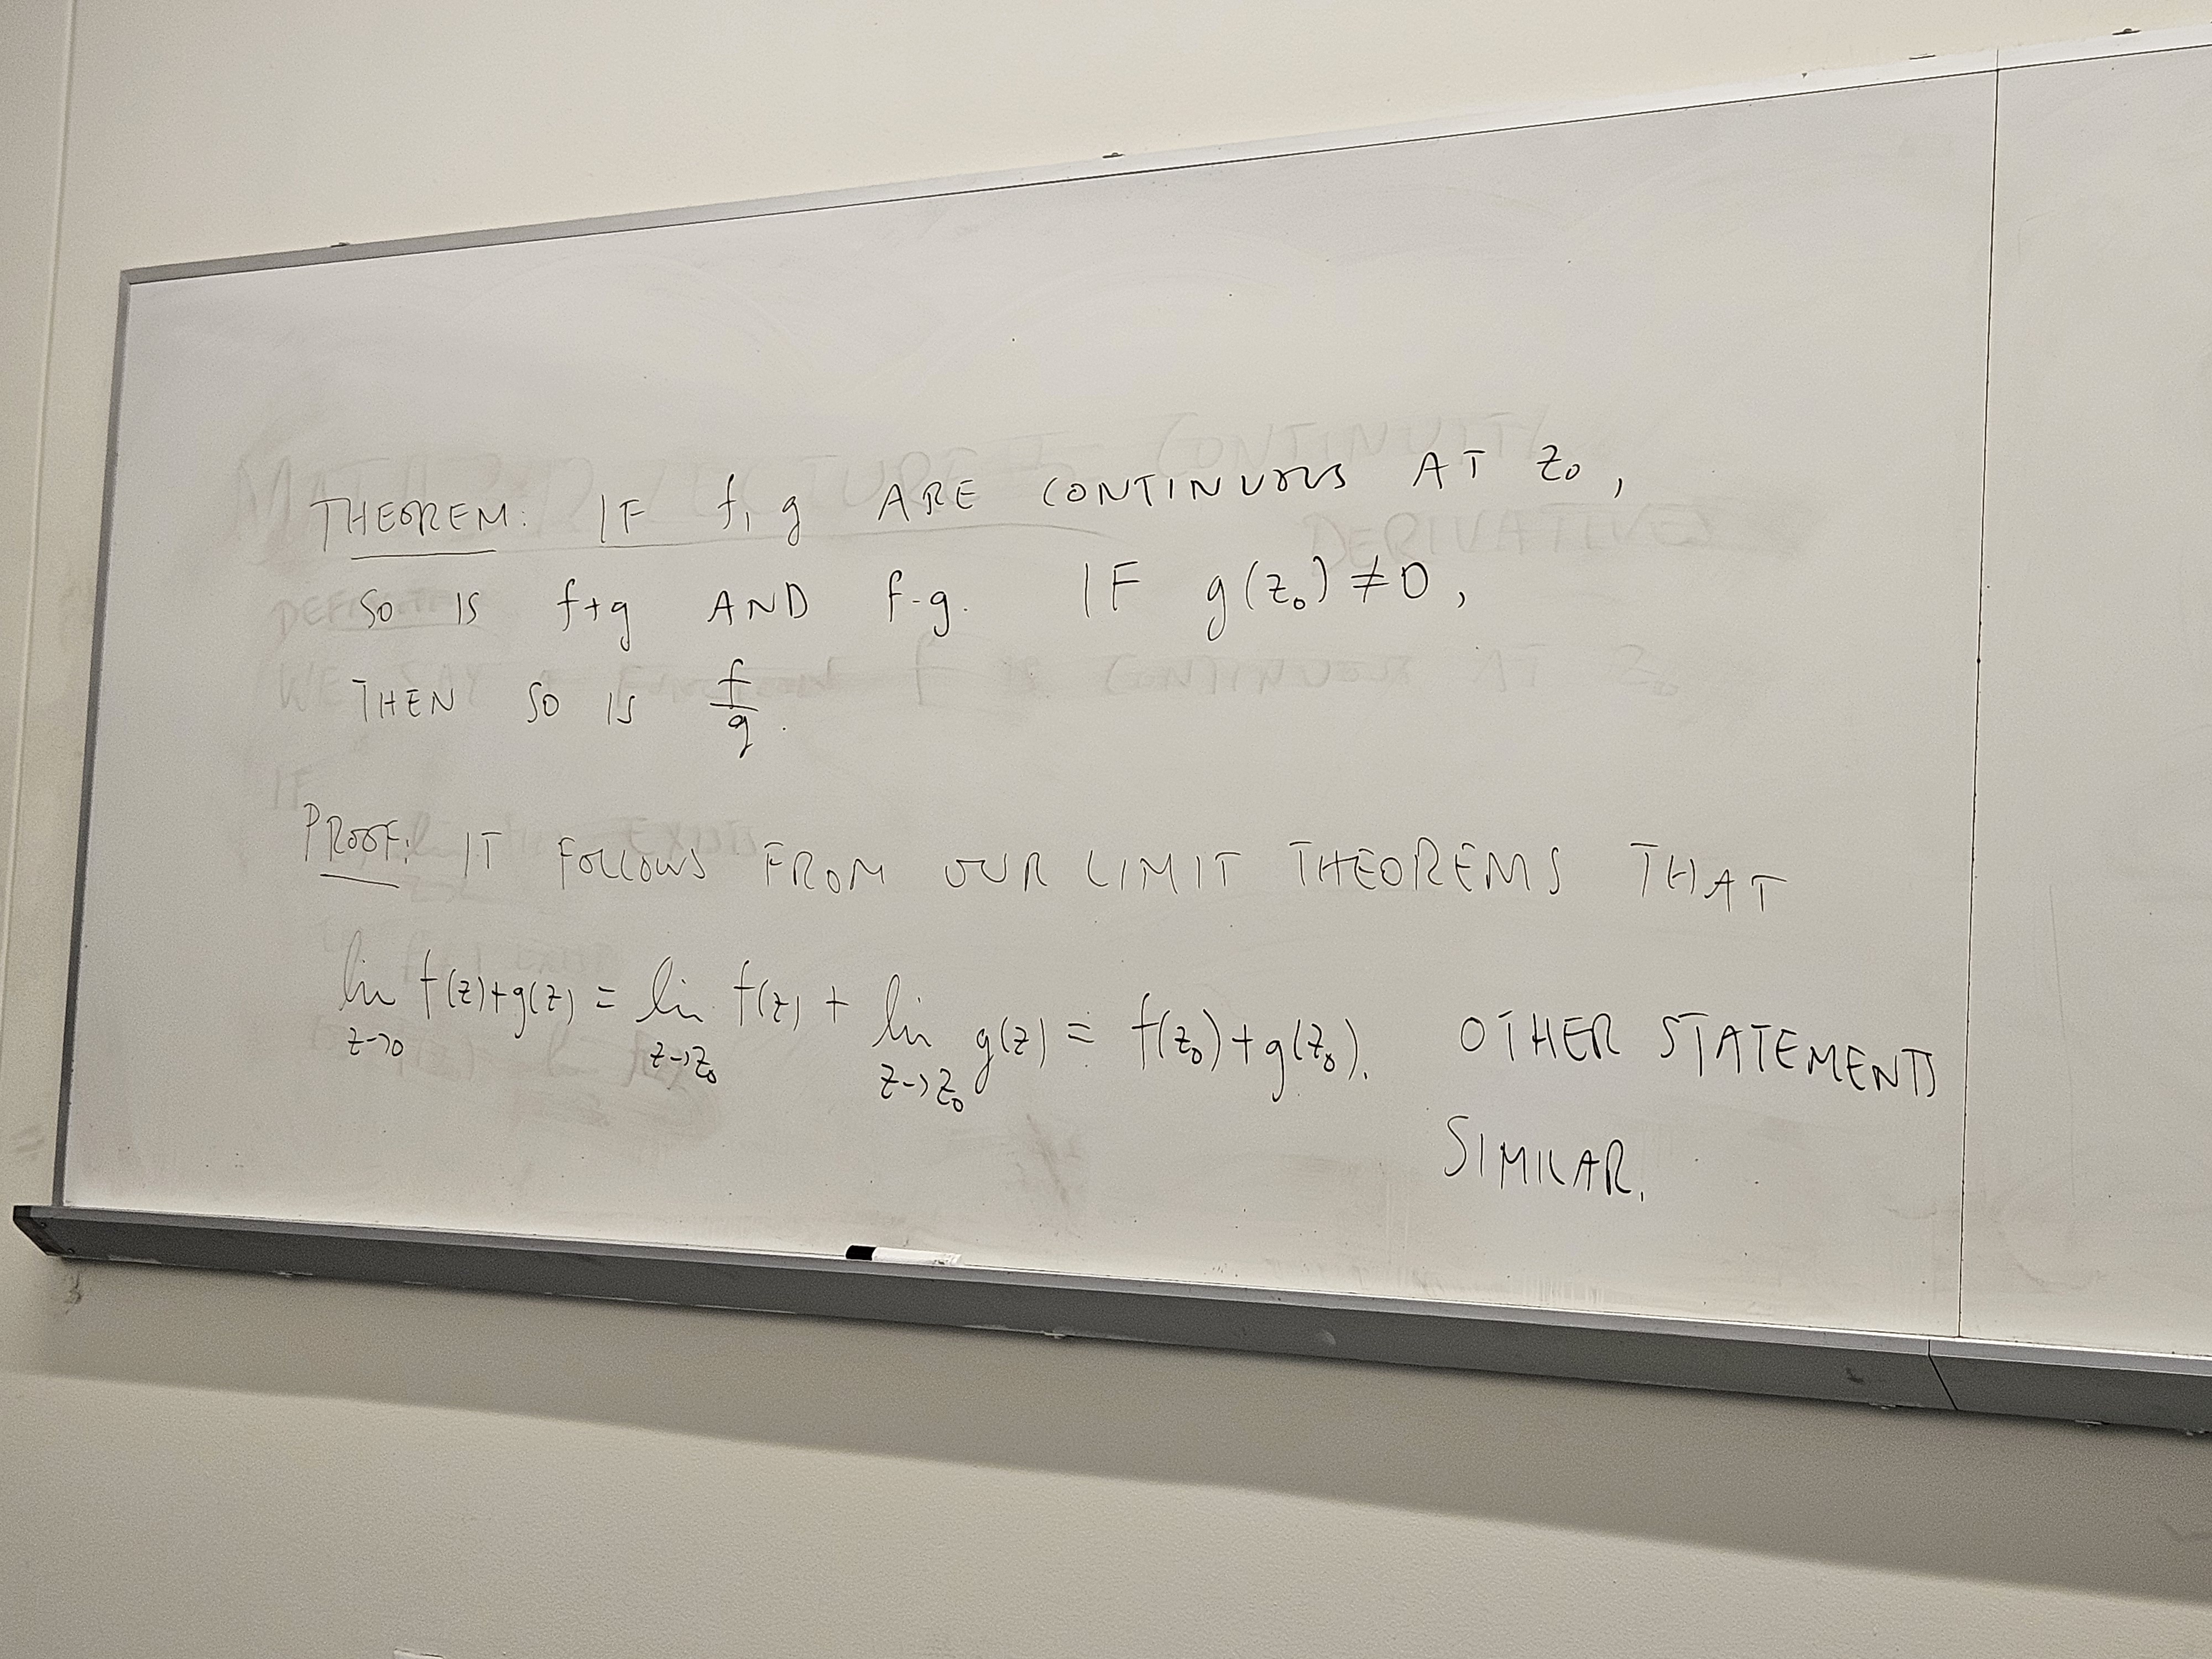 THEOREM: IF f, g ARE CONTINUOUS AT z₀,
SO IS f+g AND f-g. IF g(z₀) ≠ 0,
THEN SO IS f/g.
PROOF: IT FOLLOWS FROM OUR LIMIT THEOREMS THAT
lim z→0 f(z)+g(z) = lim z→z₀ f(z) + lim z→z₀ g(z) = f(z₀)+g(z₀). OTHER STATEMENTS
SIMILAR.